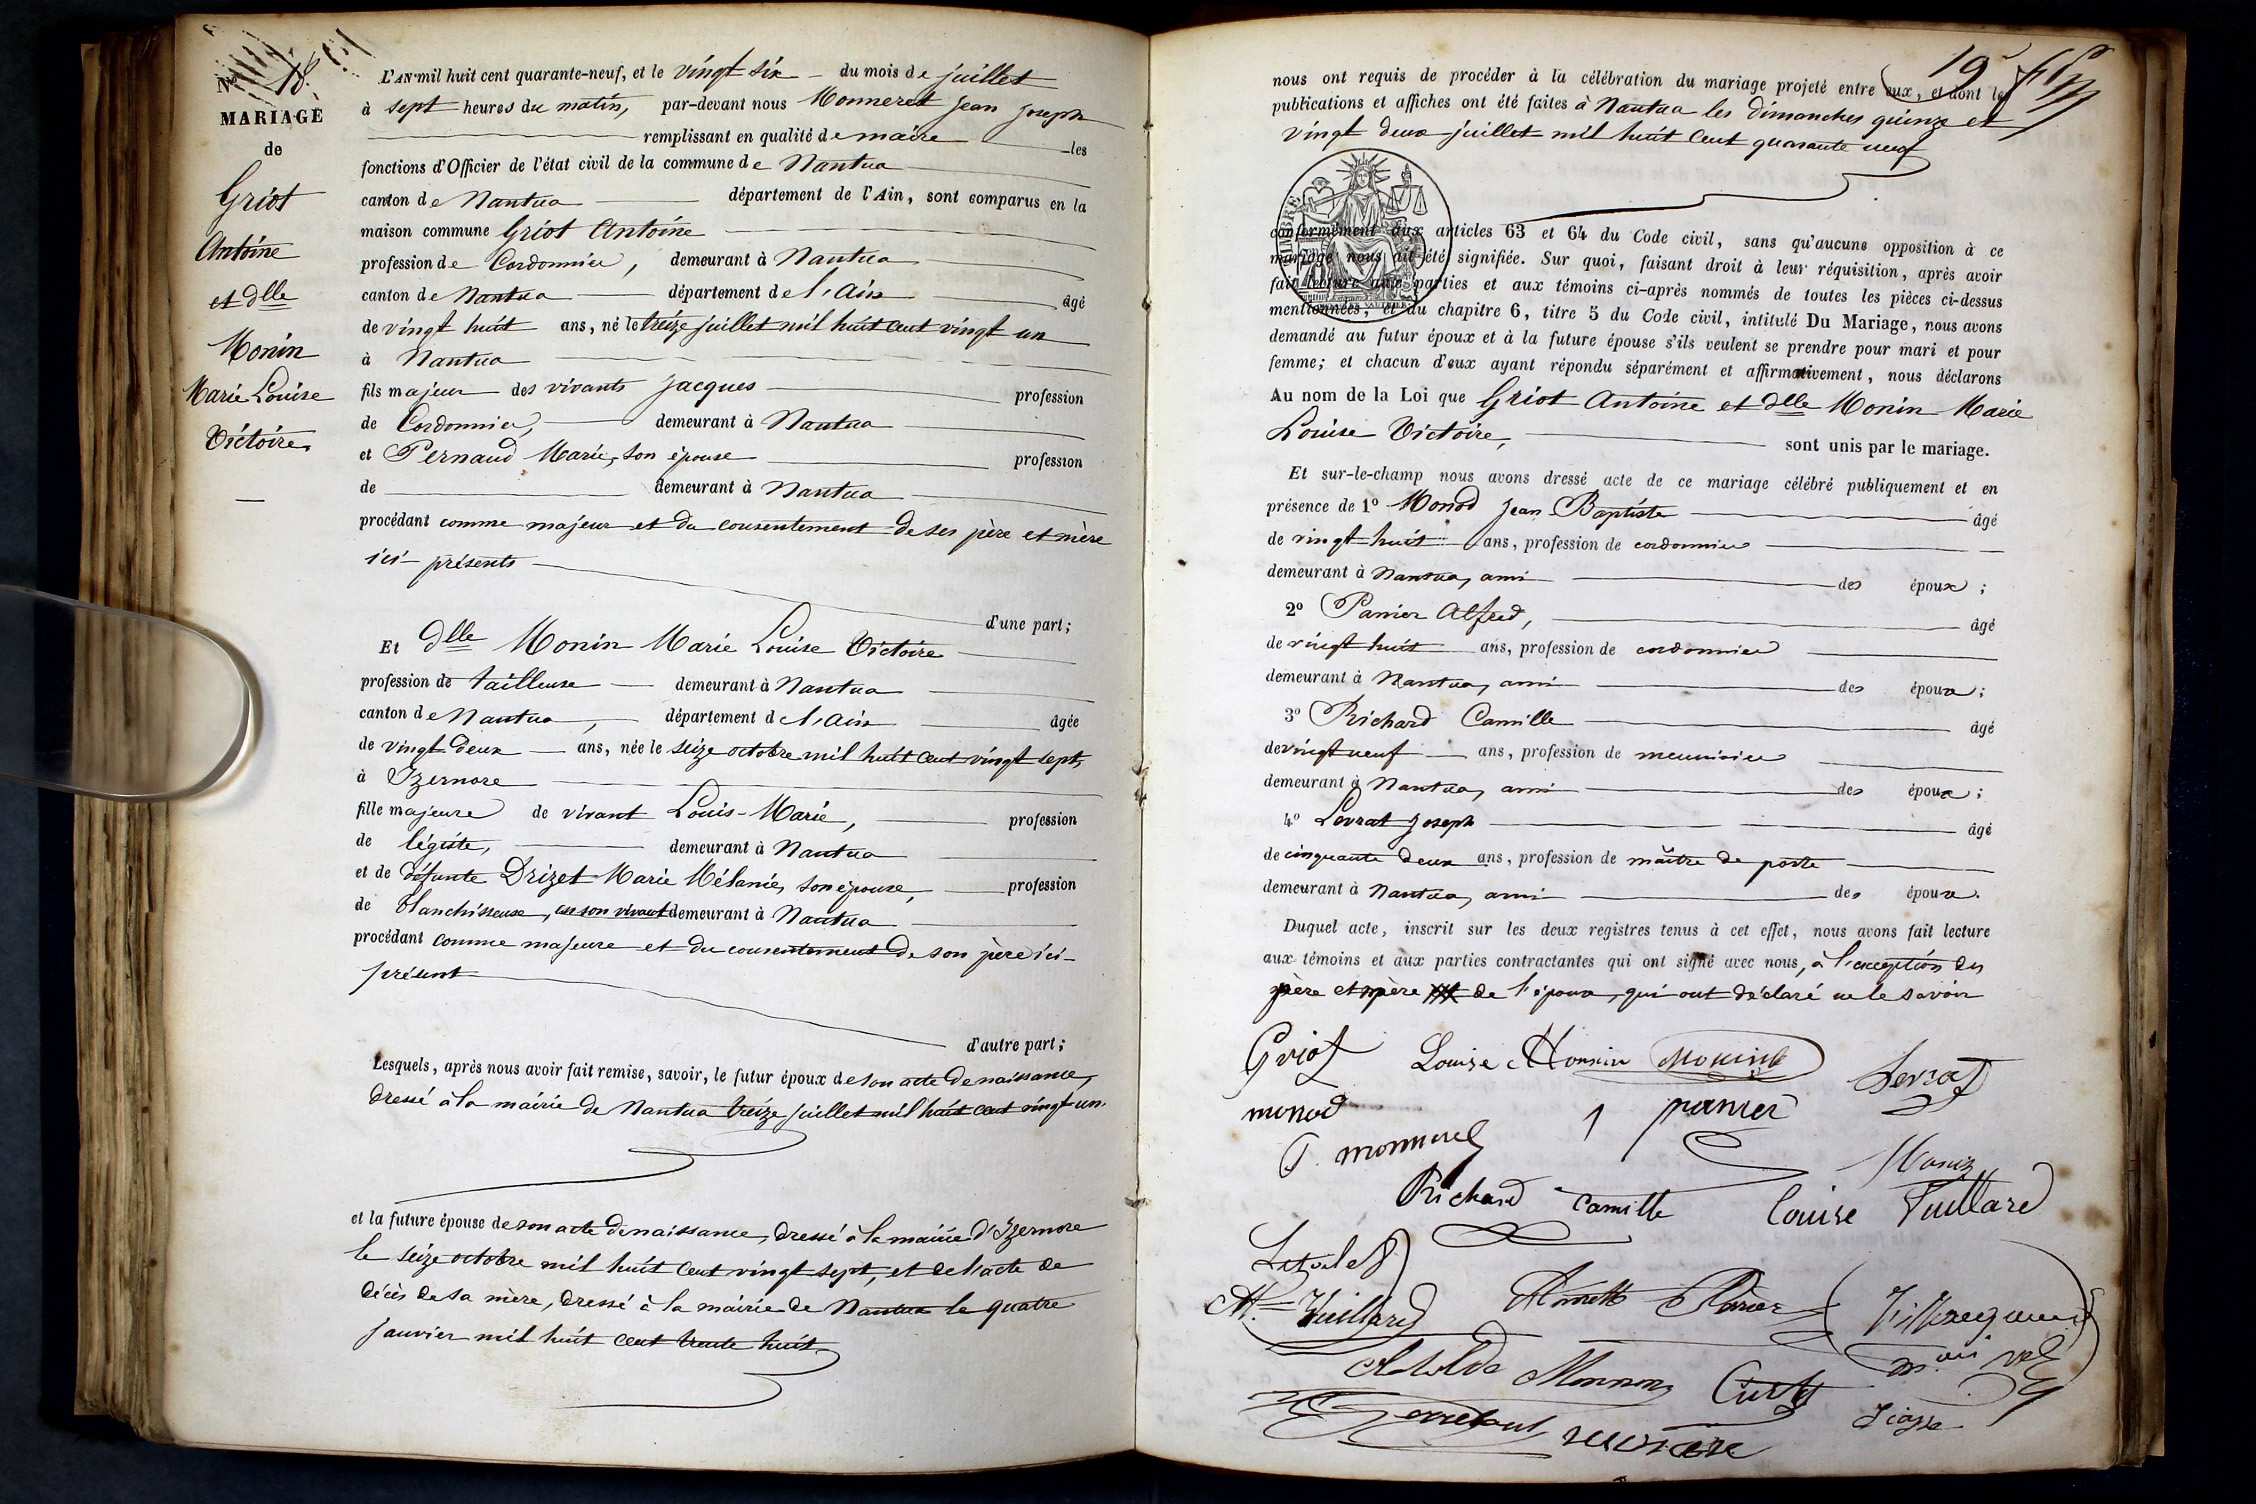 N.º 18.
MARIAGE
de
Griot
Antoine
et dlle
Monin
Marie Louise
Victoire
L'AN mil huit cent quarante-neuf, et le vingt six du mois de juillet
à sept heures du matin, par-devant nous Monneret Jean Joseph
remplissant en qualité de maire les
fonctions d'Officier de l'état civil de la commune de Nantua
canton de Nantua département de l'Ain, sont comparus en la
maison commune Griot Antoine
profession de Cordonnier, demeurant à Nantua
canton de Nantua département de l'Ain âgé
de vingt huit ans, né le treize juillet mil huit cent vingt un
à Nantua
fils majeur des vivants Jacques profession
de Cordonnier, demeurant à Nantua
et Pernaud Marie, son épouse profession
de demeurant à Nantua
procédant comme majeur et du consentement de ses père et mère
ici présents
d'une part;
Et dlle Monin Marie Louise Victoire
profession de tailleuse demeurant à Nantua
canton de Nantua, département de l'Ain âgée
de vingt deux ans, née le seize octobre mil huit cent vingt sept,
à Izernore
fille majeure de vivant Louis-Marie, profession
de légiste, demeurant à Nantua
et de défunte Drizet Marie Mélanie, son épouse, profession
de blanchisseuse, en son vivant demeurant à Nantua
procédant comme majeure et du consentement de son père ici-
présent
d'autre part;
Lesquels, après nous avoir fait remise, savoir, le futur époux de son acte de naissance,
dressé à la mairie de Nantua treize juillet mil huit cent vingt un.
et la future épouse de son acte de naissance, dressé à la mairie d'Izernore
le seize octobre mil huit cent vingt sept, et de l'acte de
décès de sa mère, dressé à la mairie de Nantua le quatre
janvier mil huit cent trente huit
19
nous ont requis de procéder à la célébration du mariage projeté entre eux, et dont les
publications et affiches ont été faites à Nantua les dimanches quinze et
vingt deux juillet mil huit cent quarante neuf
TIMBRE
conformément aux articles 63 et 64 du Code civil, sans qu'aucune opposition à ce
mariage nous ait été signifiée. Sur quoi, faisant droit à leur réquisition, après avoir
fait lecture aux parties et aux témoins ci-après nommés de toutes les pièces ci-dessus
mentionnées, et du chapitre 6, titre 5 du Code civil, intitulé Du Mariage, nous avons
demandé au futur époux et à la future épouse s'ils veulent se prendre pour mari et pour
femme; et chacun d'eux ayant répondu séparément et affirmativement, nous déclarons
Au nom de la Loi que Griot Antoine et dlle Monin Marie
Louise Victoire, sont unis par le mariage.
Et sur-le-champ nous avons dressé acte de ce mariage célébré publiquement et en
présence de 1º Monod Jean Baptiste âgé
de vingt huit ans, profession de cordonnier
demeurant à Nantua, ami des époux;
2º Panier Alfred, âgé
de vingt huit ans, profession de cordonnier
demeurant à Nantua, ami des époux;
3º Richard Camille âgé
de vingt neuf ans, profession de menuisier
demeurant à Nantua, ami des époux;
4º Levrat Joseph âgé
de cinquante deux ans, profession de maître de poste
demeurant à Nantua, ami des époux.
Duquel acte, inscrit sur les deux registres tenus à cet effet, nous avons fait lecture
aux témoins et aux parties contractantes qui ont signé avec nous, à l'exception des
père et mère de l'époux, qui ont déclaré ne le savoir
Griot Louise Monnin Monin Levrat
monod panier
J. monneret Monin
Richard Camille Louise Vuillard
Vuillard